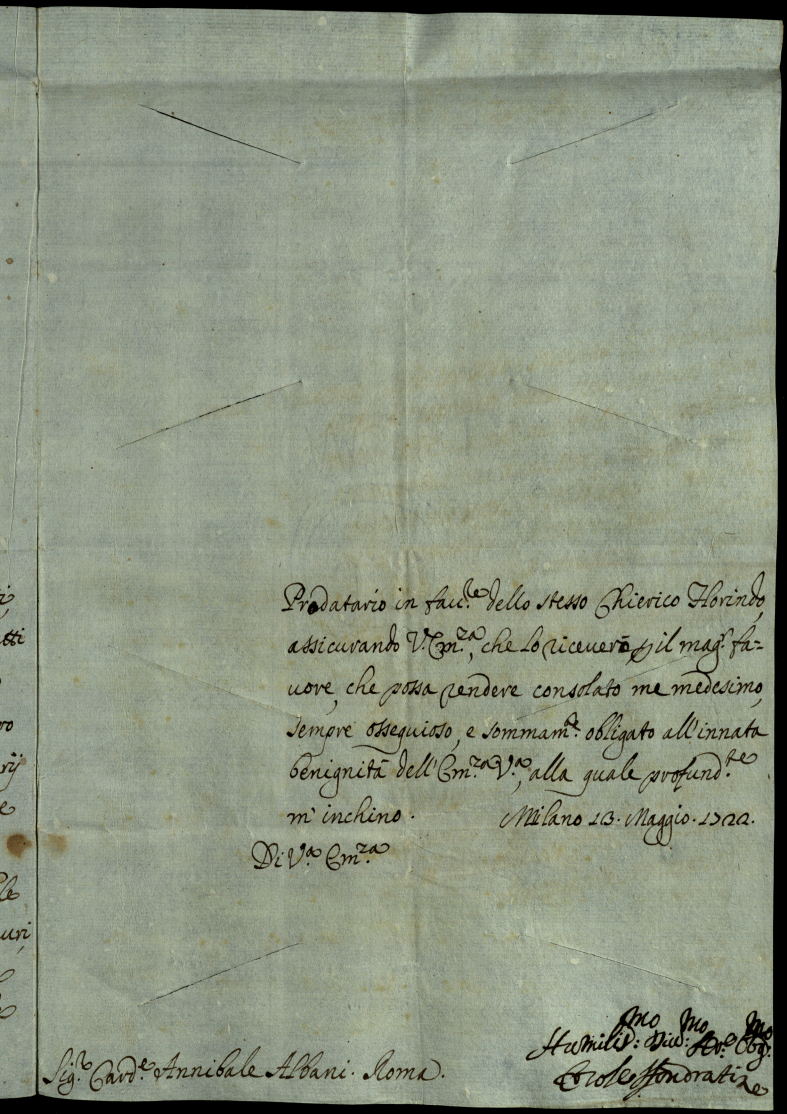 Prodatario in fau.re dello stesso Chierico Florindo,
assicurando V. Em.za, che lo riceverò p il mag.r fa-
uore, che possa rendere consolato me medesimo,
sempre ossequioso, e sommam.e obligato all'innata
benignità dell'Em.za V.a, alla quale profund.te
m'inchino. Milano 13. Maggio. 1722.
Di V.a Em.za
Humilis.mo Diu.mo Ser.e Obg.mo
Sig.r Card.e Annibale Albani. Roma.
Ercole Sfondrati